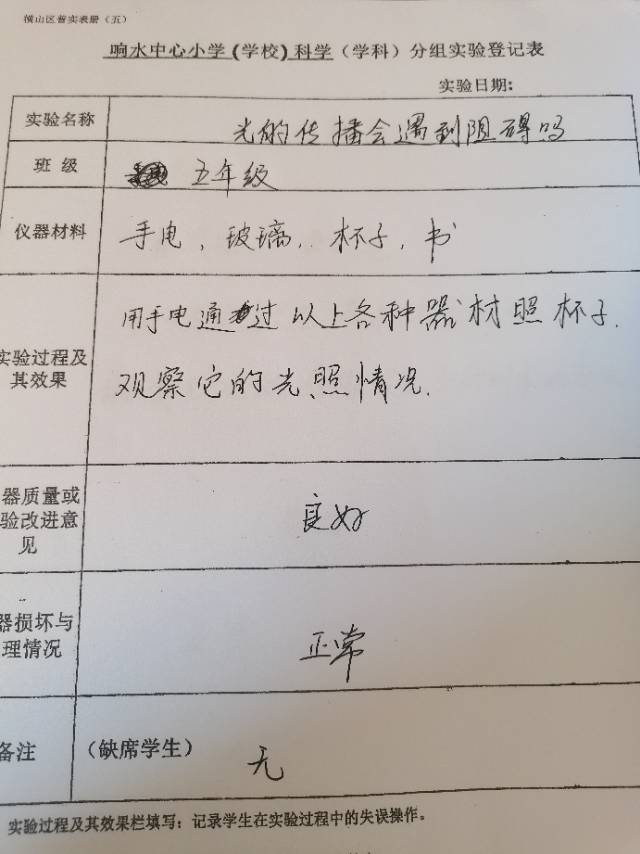 横山区普实表册（五）
响水中心小学(学校)科学（学科）分组实验登记表
实验日期:
实验名称 光的传播会遇到阻碍吗
班 级 五年级
仪器材料 手电，玻璃，杯子，书
用手电通过以上各种器材照杯子.
实验过程及
其效果
观察它的光照情况.
器质量或
验改进意
见
良好
器损坏与
理情况
正常
备注 （缺席学生） 无
实验过程及其效果栏填写：记录学生在实验过程中的失误操作。